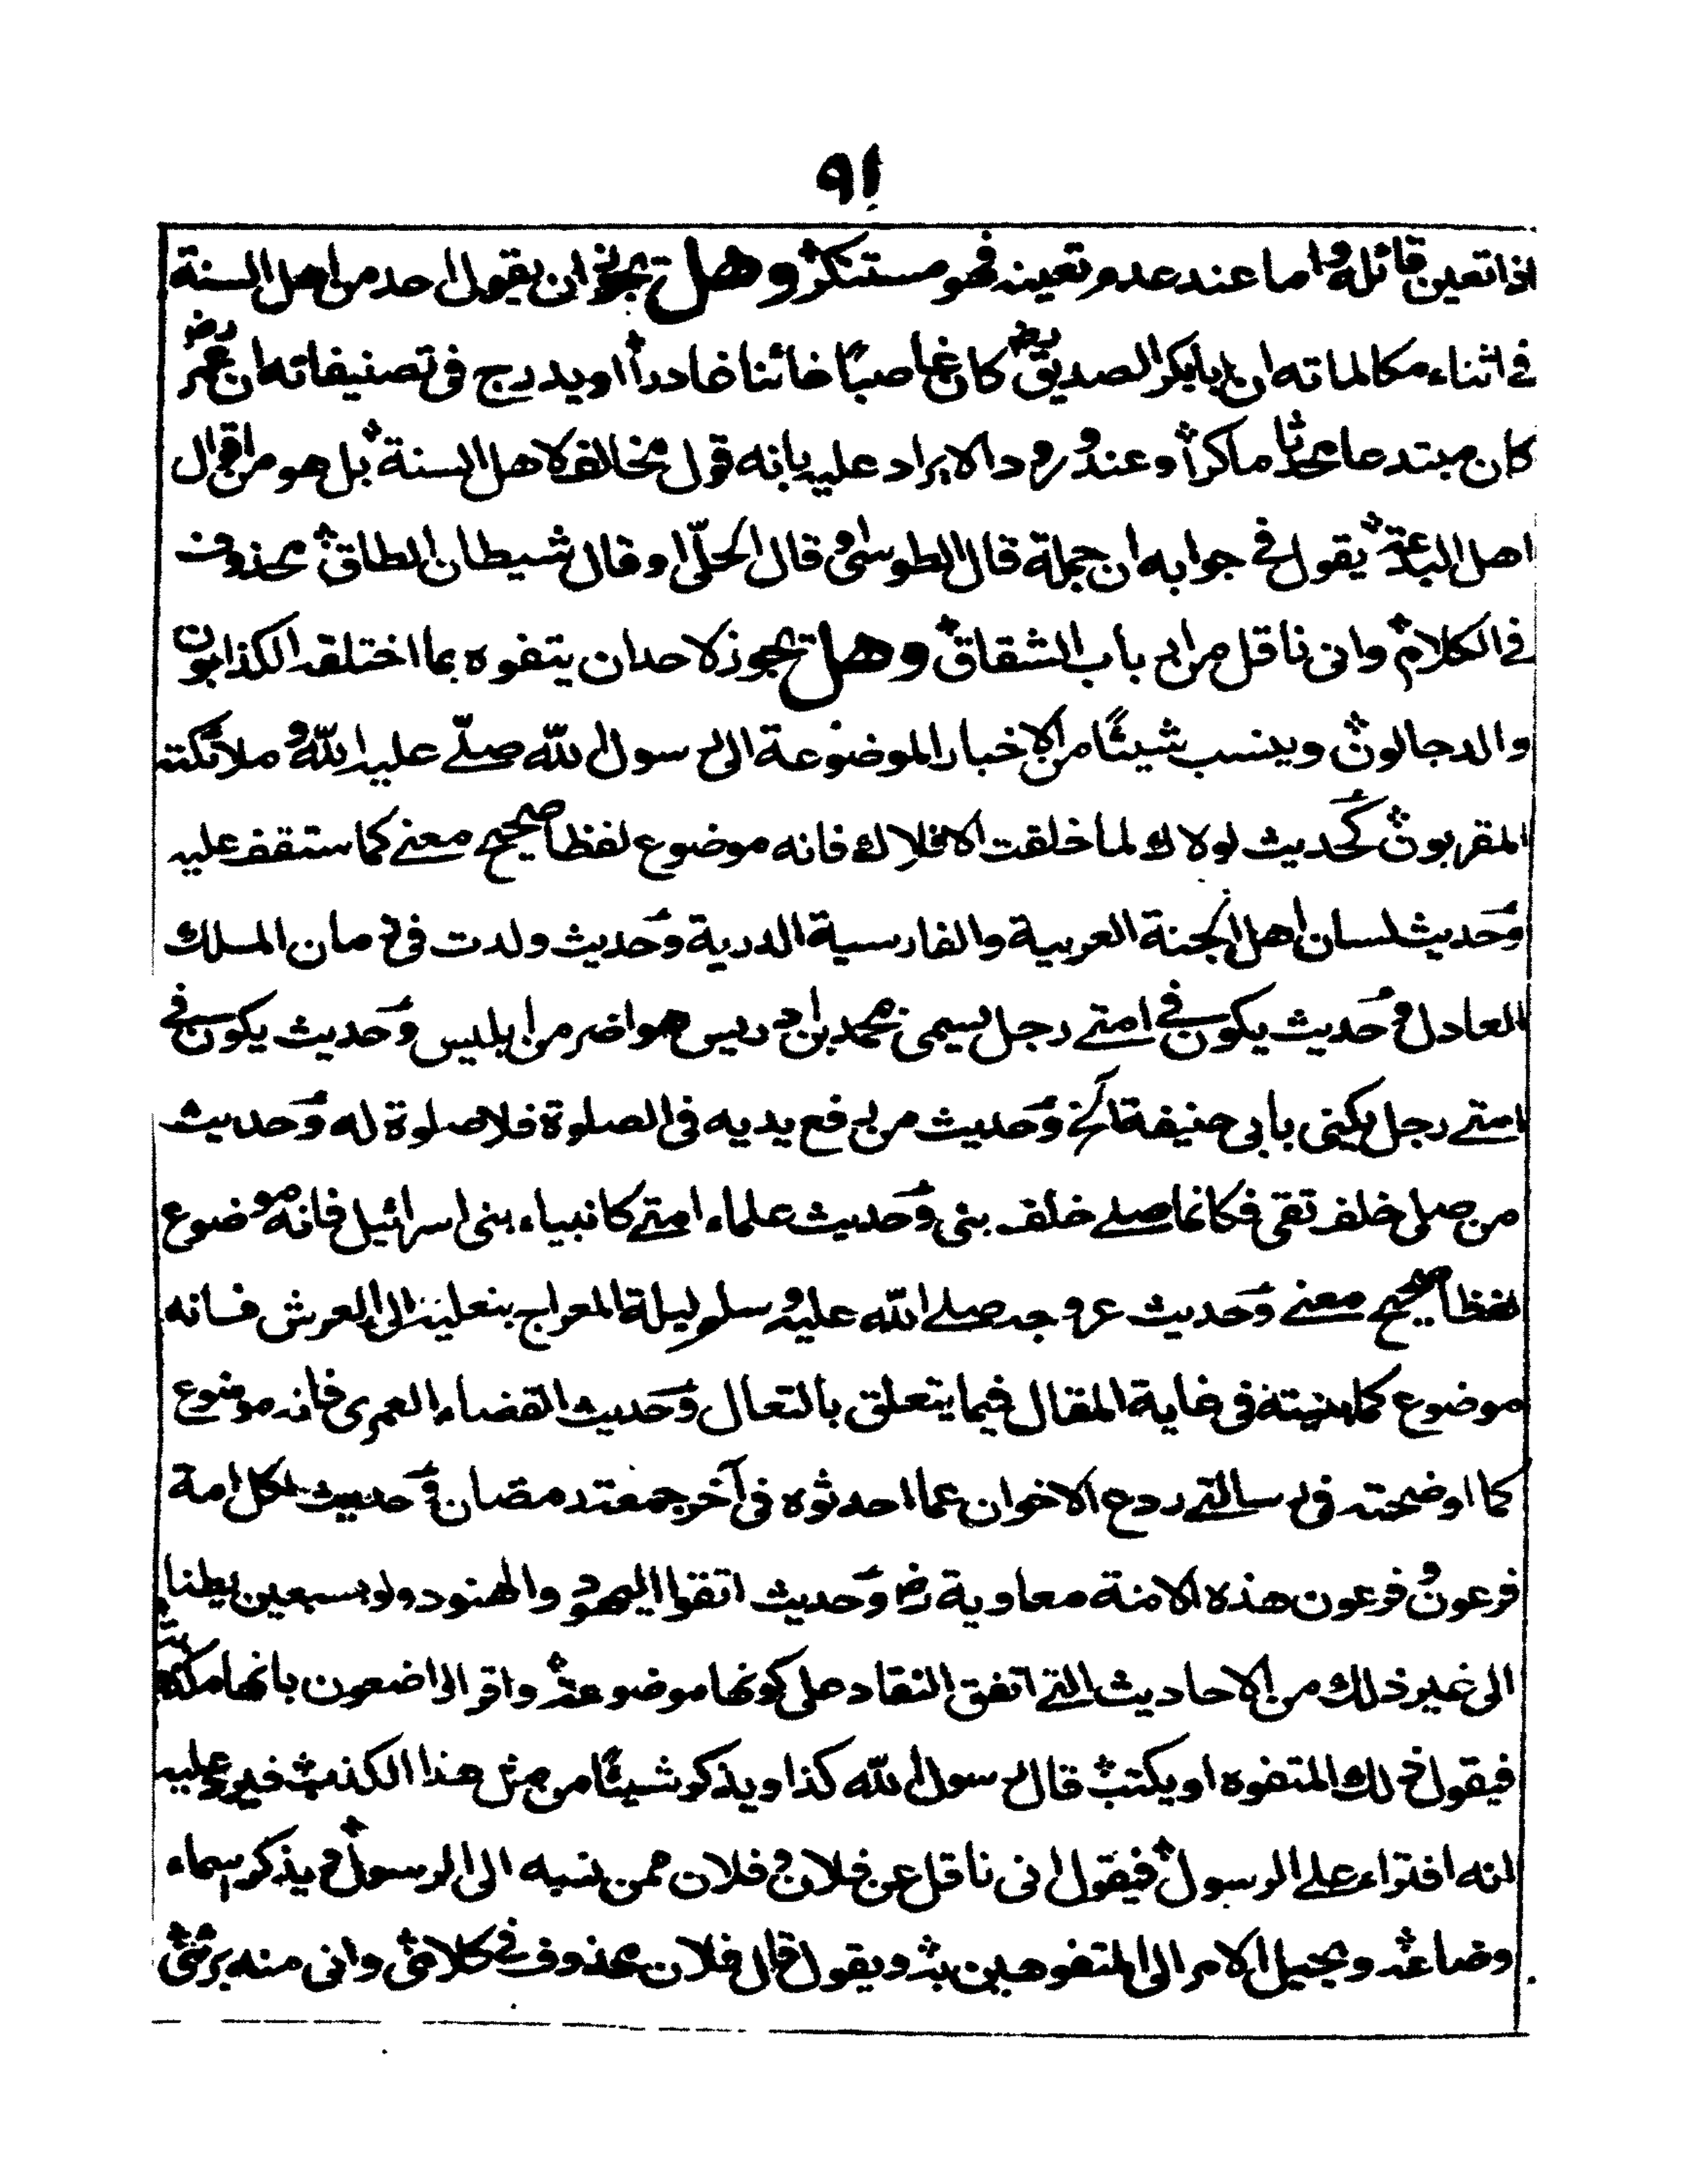 ٩١
اذا تعين قائله واما عند عدم تعينه فهو مستنكر وهل يجوز ان يقول احد من اهل السنة
في اثناء مكالماته ان ابا بكر الصديق رض كان غاصبا خائنا غادرا او يدرج في تصنيفاته ان عمر رض
كان مبتدعا محدثا ماكرا وعند ورود الايراد عليه بانه قول مخالف لاهل السنة بل هو من اقوال
اهل البدعة يقول في جوابه ان جملة قال الطوسي وقال الحلّي او قال شيطان الطاق محذوف
في الكلام واني ناقل من ارباب الشقاق وهل يجوز لاحد ان يتفوه بما اختلقه الكذابون
والدجالون وينسب شيئًا من الاخبار الموضوعة الى رسول الله صلّے عليه الله وملائكته
المقربون كحديث لولاك لما خلقت الافلاك فانه موضوع لفظا صحيح معنے كما ستقف عليه
وحديث لسان اهل الجنة العربية والفارسية الدرية وحديث ولدت في زمان الملك
العادل وحديث يكون في امتے رجل يسمى محمد بن ادريس هو اضر من ابليس وحديث يكون في
امتے رجل يكنى بابي حنيفة الخ وحديث من رفع يديه في الصلوة فلا صلوة له وحديث
من صلى خلف تقي فكانما صلے خلف نبي وحديث علماء امتے كانبياء بني اسرائيل فانه موضوع
لفظا صحيح معنے وحديث عروجه صلے الله عليه وسلم ليلة المعراج بنعليه الى العرش فانه
موضوع كما بينته في غاية المقال فيما يتعلق بالنعال وحديث القضاء العمري فانه موضوع
كما اوضحته في رسالتے ردع الاخوان عما احدثوه في آخر جمعة رمضان وحديث لكل امة
فرعون وفرعون هذه الامة معاوية رض وحديث اتقوا اليهود والهنود ولو بسبعين بطنا
الى غير ذلك من الاحاديث التے اتفق النقاد على كونها موضوعة واقر الواضعون بانها مكذوبة
فيقول ذلك المتفوه او يكتب قال رسول الله كذا ويذكر شيئًا من مثل هذا الكذب فيرد عليه
انه افتراء علے الرسول فيقول اني ناقل عن فلان وفلان ممن نسبه الى الرسول ويذكر اسماء
وضاعه ويحيل الامر الى المتفوهين به ويقول قال فلان محذوف في كلامي واني منه بري